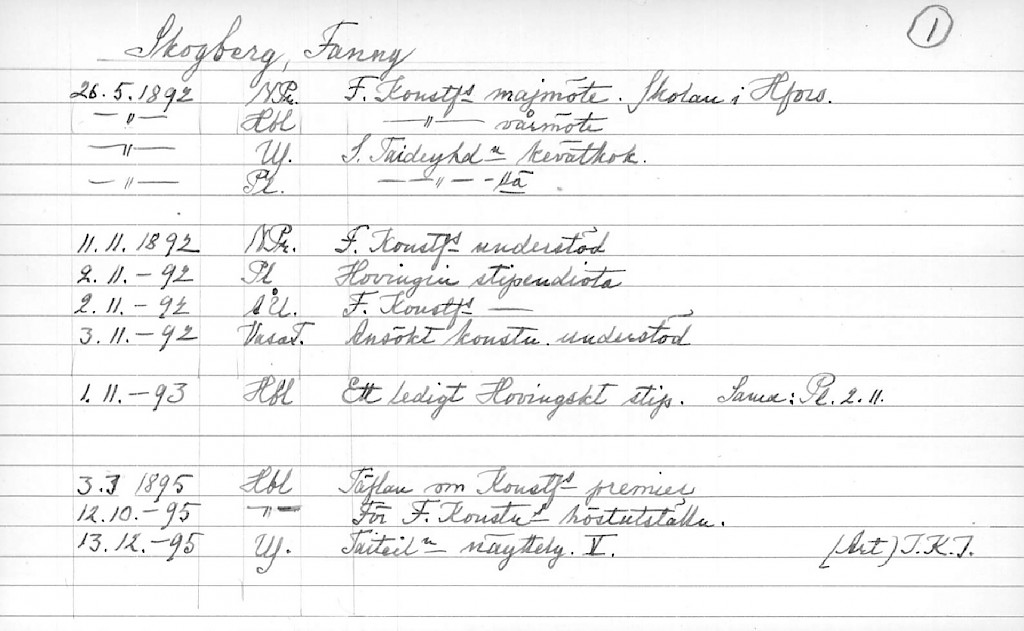 1
Skogberg, Fanny
26.5.1892 NPr. F. Konstfs majmöte. Skolan i Hfors.
— " — Hbl — " — vårmöte
— " — Uf. S. Taideyhdn kevätkok.
— " — Pl. — " — -stä
11.11.1892 NPr. F. Konstfs understöd
2.11.-92 Pl Hovingin stipendiota
2.11.-92 ÅU. F. Konstfs —
3.11.-92 VasaT. Ansökt konstn. understöd
1.11.-93 Hbl Ett ledigt Hovingskt stip. Sama: Pl. 2.11.
3.3 1895 Hbl Täflan om Konstfs premier
12.10.-95 — " — För F. Konstns höstutställn.
13.12.-95 Uf. Taiteiln näyttely. V. (Art) J.K.J.